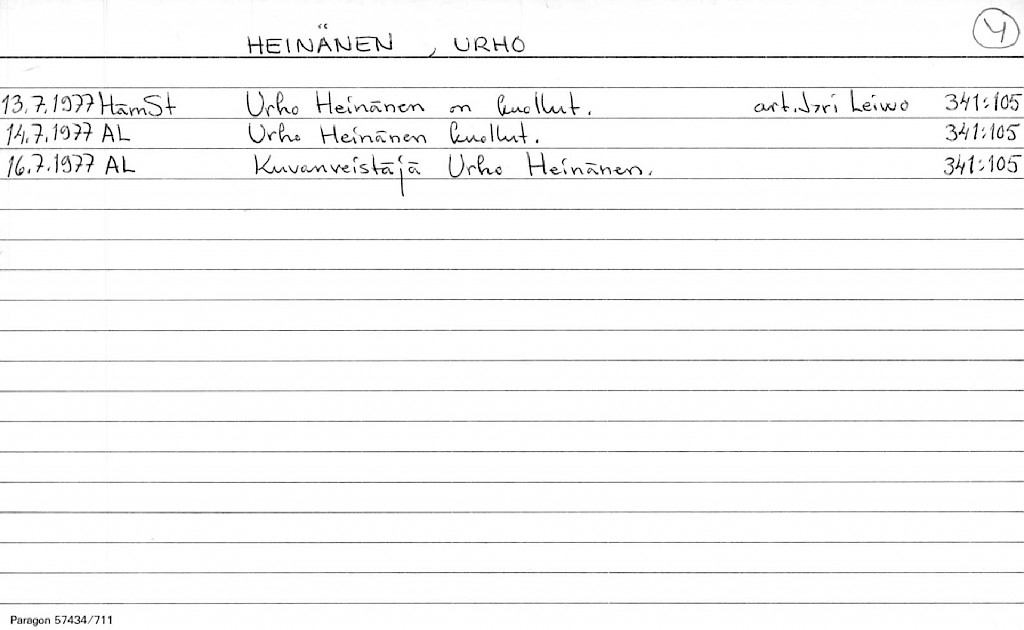 HEINÄNEN, URHO 4
13.7.1977 HämSt Urho Heinänen on kuollut. art. Jori Leiwo 341:105
14.7.1977 AL Urho Heinänen kuollut. 341:105
16.7.1977 AL Kuvanveistäjä Urho Heinänen. 341:105
Paragon 57434/711